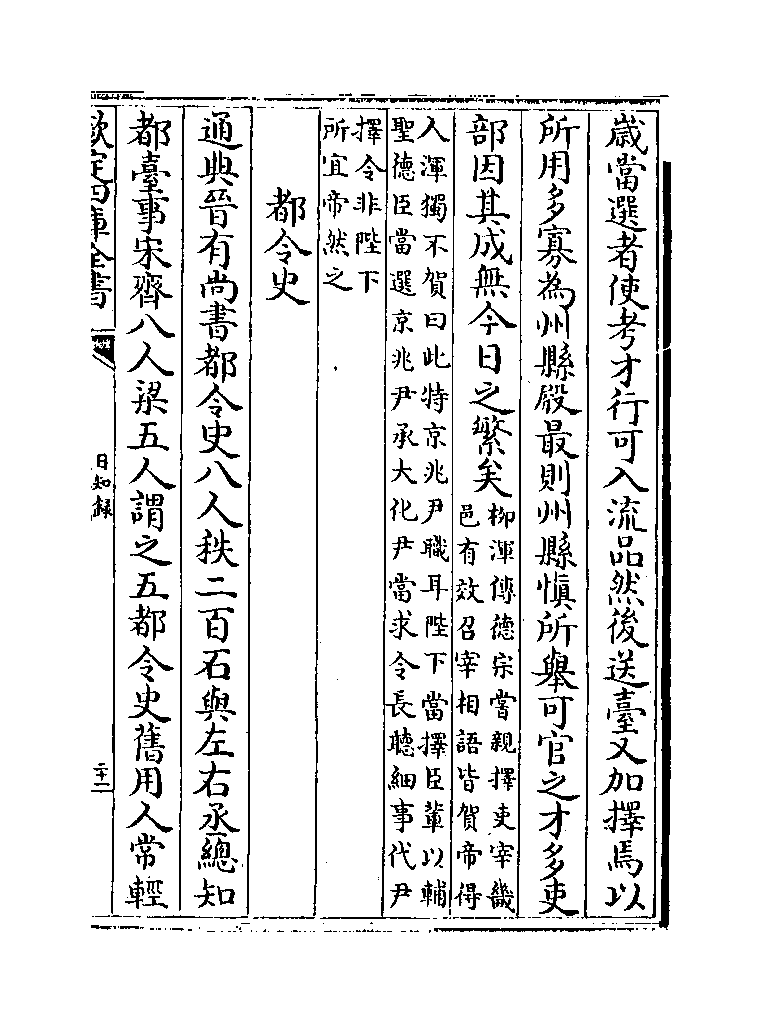 歲當選者使考才行可入流品然後送臺又加擇焉以
所用多寡為州縣殿最則州縣慎所舉可官之才多吏
部因其成無今日之繁矣
柳渾傳德宗嘗親擇吏宰畿
邑有效召宰相語皆賀帝得
人渾獨不賀曰此特京兆尹職耳陛下當擇臣輩以輔
聖德臣當選京兆尹承大化尹當求令長聽細事代尹
擇令非陛下
所宜帝然之
都令史
通典晉有尚書都令史八人秩二百石與左右丞總知
都臺事宋齊八人梁五人謂之五都令史舊用人常輕
欽定四庫全書
日知錄
二十二